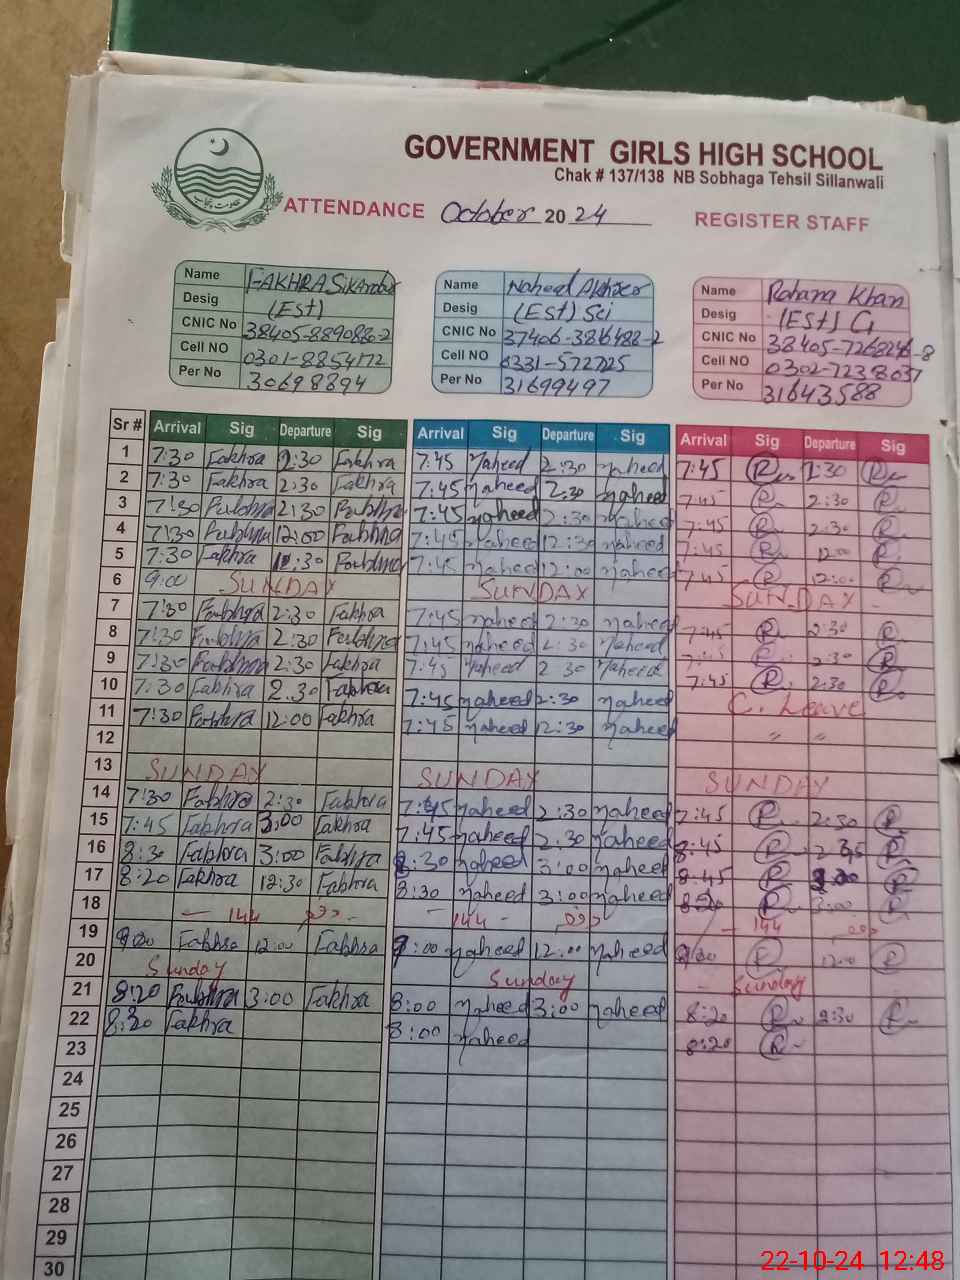 GOVERNMENT GIRLS HIGH SCHOOL
Chak # 137/138 NB Sobhaga Tehsil Sillanwali
ATTENDANCE October 2024 REGISTER STAFF
Name FAKHRA Sikandar Name Naheed Akhter Name Rahana Khan
Desig (Est) Desig (Est) Sci Desig (EST) G
CNIC No 38405-889088-2 CNIC No 37406-3816488-2 CNIC No 38405-7268246-8
Cell NO 0301-8854172 Cell NO 0331-572725 Cell NO 0302-7238037
Per No 30698894 Per No 31699497 Per No 31643588
Sr # Arrival Sig Departure Sig Arrival Sig Departure Sig Arrival Sig Departure Sig
1 7:30 Fakhra 2:30 Fakhra 7:45 Naheed 2:30 Naheed 7:45 R 2:30 R
2 7:30 Fakhra 2:30 Fakhra 7:45 Naheed 2:30 Naheed 7:45 R 2:30 R
3 7:30 Fakhra 2:30 Fakhra 7:45 Naheed 2:30 Naheed 7:45 R 2:30 R
4 7:30 Fakhra 12:00 Fakhra 7:45 Naheed 12:30 Naheed 7:45 R 12:00 R
5 7:30 Fakhra 12:30 Fakhra 7:45 Naheed 12:00 Naheed 7:45 R 12:00 R
6 9:00 SUNDAY SUNDAY SUNDAY
7 7:30 Fakhra 2:30 Fakhra 7:45 Naheed 2:30 Naheed 7:45 R 2:30 R
8 7:30 Fakhra 2:30 Fakhra 7:45 Naheed 2:30 Naheed 7:45 R 2:30 R
9 7:30 Fakhra 2:30 Fakhra 7:45 Naheed 2 30 Naheed 7:45 R 2:30 R
10 7:30 Fakhra 2.30 Fakhra 7:45 Naheed 2:30 Naheed C. Leave
11 7:30 Fakhra 12:00 Fakhra 7:45 Naheed 12:30 Naheed " "
12
13 SUNDAY SUNDAY SUNDAY
14 7:30 Fakhra 2:30 Fakhra 7:45 Naheed 2:30 Naheed 7:45 R 2:30 R
15 7:45 Fakhra 3:00 Fakhra 7:45 Naheed 2.30 Naheed 8:45 R R
16 8:30 Fakhra 3:00 Fakhra 8:30 Naheed 3:00 Naheed 8:45 R R
17 8:20 Fakhra 12:30 Fakhra 8:30 Naheed 3:00 Naheed R 3:00 R
18 – 144 دفعہ – – 144 – دفعہ – 144 دفعہ
19 Fakhra 12:00 Fakhra 9:00 Naheed 12:00 Naheed R 12:00 R
20 Sunday Sunday – Sunday
21 8:20 Fakhra 3:00 Fakhra 8:00 Naheed 3:00 Naheed 8:20 R 2:30 R
22 8:20 Fakhra 8:00 Naheed 8:20 R
23
24
25
26
27
28
29
30
22-10-24 12:48